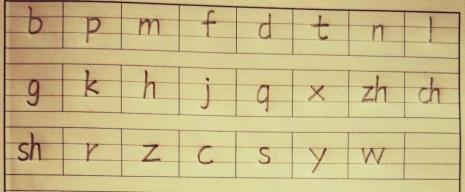 b p m f d t n l
g k h j q x zh ch
sh r z c s y w